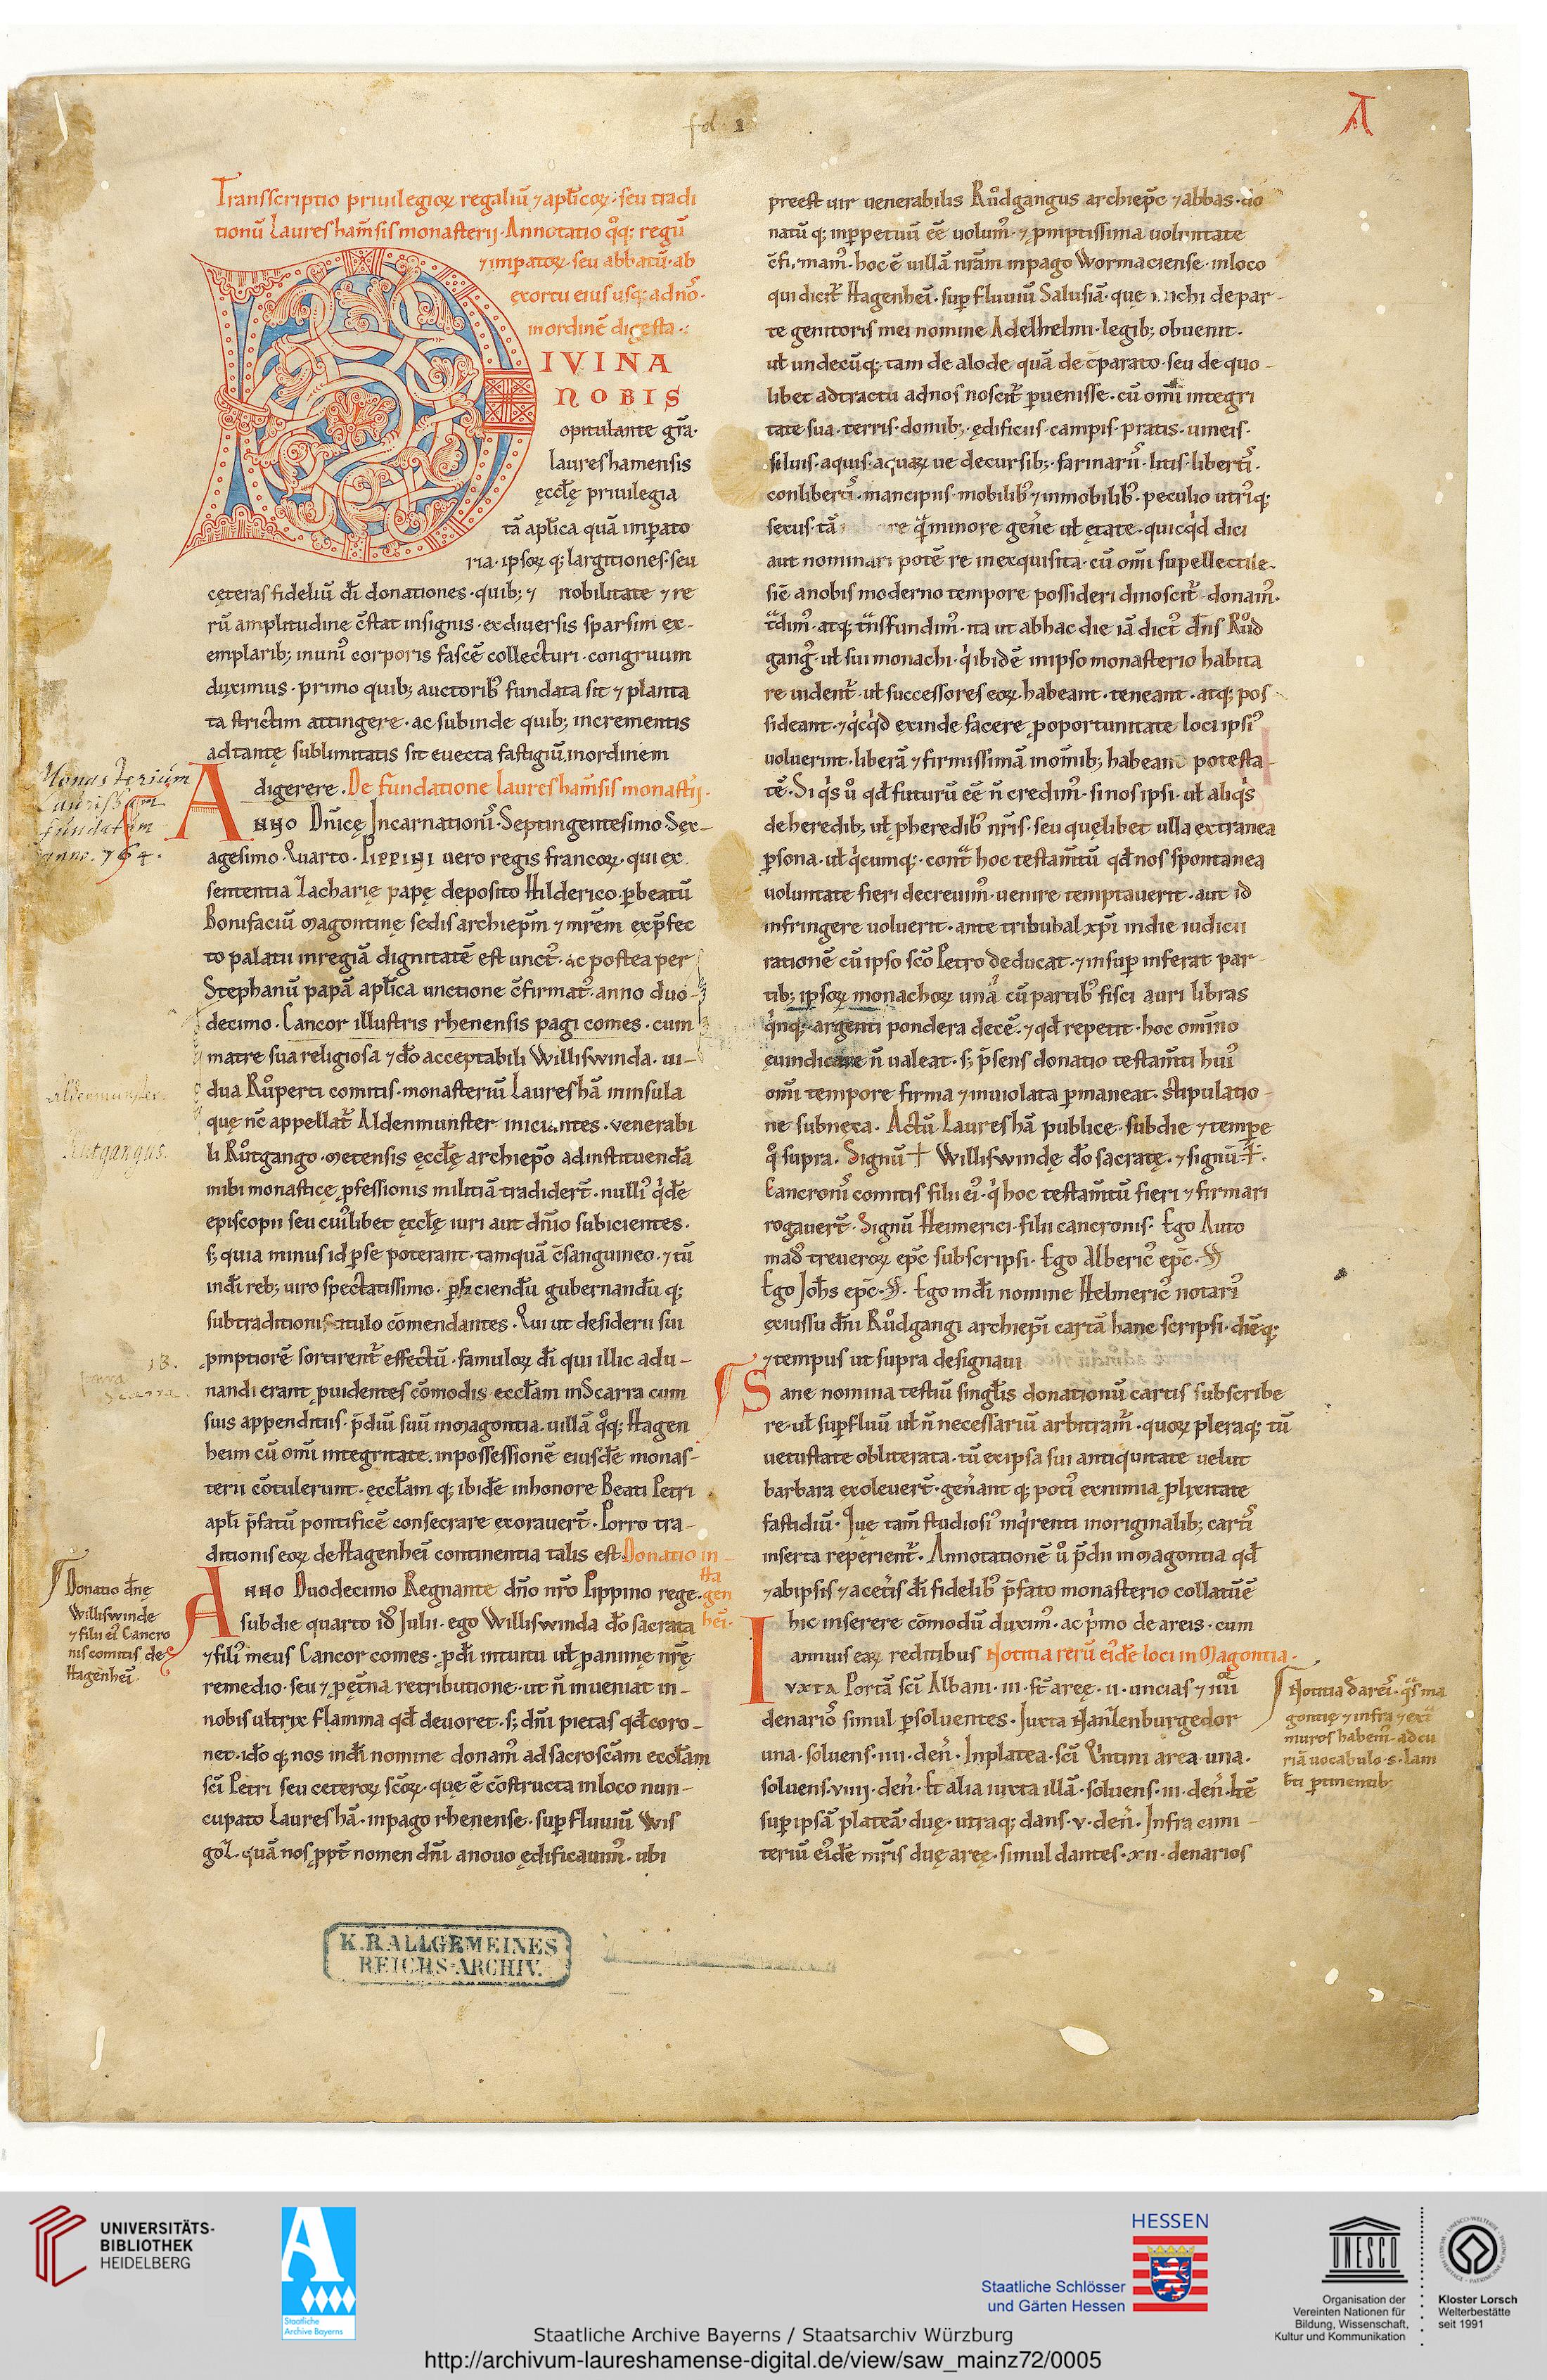 fol. 1
A
Transscriptio priuilegioꝝ regaliū ⁊ apl̄icoꝝ · seu tradi
tionū Laureshām̄sis monasterij · Annotatio qͦq; regū
⁊ imꝑatoꝝ · seu abbatū · ab
exortu eius usq; ad nr̄o ·
in ordinē digesta ·:
DIVINA
NOBIS
opitulante gr̄a ·
laureshamensis
ęccl̄ę priuilegia
tā apl̄ica quā imꝑato
ria · ipsoꝝ q; largitiones · seu
cęteras fideliū dī donationes · quib; ⁊ nobilitate ⁊ re
rū amplitudine c̄stat insignis · ex diuersis sparsim ex-
emplarib; in unꝰ corporis fascē collecturi · congruum
duximus · primo quib; auctoribꝰ fundata sit ⁊ planta
ta strictim attingere · ac subinde quib; incrementis
ad tantę sublimitatis sit euecta fastigiū in ordinem
digerere · De fundatione laureshām̄sis monastij ·
Anno Dn̄icę Incarnationiꝰ · Septingentesimo · Sex-
agesimo · Quarto · Pippini uero regis francoꝝ · qui ex
sententia Zacharię papę deposito Hilderico · ꝑ beatū
Bonifaciū magontinę sedis archiep̄m ⁊ mr̄em ex p̄fec
to palatii in regiā dignitatē est unctꝰ · ac postea per
Stephanū papā apl̄ica unctione c̄firmatꝰ · anno duo-
decimo · Cancor illustris rhenensis pagi comes · cum
matre sua religiosa ⁊ dō acceptabili Williswinda · ui-
dua Růperti comitis · monasteriū Laureshā in insula
quę nc̄ appellat̄ Aldenmunster iniciantes · venerabi
li Růtgango · metensis ęccl̄ę archiep̄o ad instituendā
inibi monasticę ꝓfessionis militiā tradider̄t · nulliꝰ qͥdē
episcopii seu cuiꝰlibet ęccl̄ę iuri aut dn̄io subicientes ·
s; quia minus id ꝑ se poterant · tamquā c̄sanguineo · ⁊ tū
in dī reb; uiro spectatissimo · ꝑficiendū gubernandū q;
sub traditionis titulo cōmendantes · Qui ut desiderii sui
ꝓmptiorē sortirent̄ effectū · famuloꝝ dī qui illic adu-
nandi erant ꝓuidentes cōmodis · eccl̄am in Scarra cum
suis appenditiis · p̄diū suū in magontia · uillā qͦq; Hagen
heim cū om̄i integritate · in possessionē eiusdē monas-
terii cōtulerunt · ęccl̄am q; ibidē in honore Beati Petri
apl̄i p̄fatū pontificē consecrare exorauer̄t · Porro tra-
ditionis eoꝝ de Hagenheī continentia talis est · Donatio in
Hagenheī ·
Anno Duodecimo Regnante dn̄o nr̄o Pippino rege ·
sub die quarto idꝰ Julii · ego Williswinda dō sacrata
⁊ filiꝰ meus Cancor comes · ꝓ dī intuitu ul̄ ꝓ animę nr̄ę
remedio · seu ⁊ ꝓ ętn̄a retributione · ut n̄ inueniat in-
nobis ultrix flamma qd̄ deuoret · s; dn̄i pietas qd̄ coro-
net · idō q; nos in dī nomine donamꝰ ad sacroscām eccl̄am
sc̄i Petri seu ceteroꝝ sc̄oꝝ · quę ē cōstructa in loco nun-
cupato Laureshā · in pago rhenense · suꝑ fluuiū Wis
gol̄ · quā nos ꝓpt̄ nomen dn̄i a nouo ędificauimꝰ · ubi
preest uir uenerabilis Růdgangus archiep̄c ⁊ abbas · do
natū q; in ꝑpetuū eē uolumꝰ · ⁊ ꝓmptissima uoluntate
c̄fi · mamꝰ · hoc ē uillā nr̄am in pago Wormaciense · in loco
qui dicit̄ Hagenheī · suꝑ fluuiū Salusiā · que michi de par-
te genitoris mei nomine Adelhelmi · legib; obuenit ·
ul̄ undecūq; tam de alode quā de c̄parato · seu de quo-
libet adtractu ad nos noscit̄ ꝑuenisse · cū om̄i integri
tate sua · terris · domib; · ędificiis · campis · pratis · uineis ·
siluis · aquis · aquaꝝ ue decursib; · farinariꝰ · litis · libertiꝰ ·
conlibertiꝰ · mancipiis · mobilibꝰ ⁊ inmobilibꝰ · peculio utriꝰq;
sexus · tā re qͣ minore gen̄e ul̄ ętate · quicqͥd dici
aut nominari potē re inexquisita · cū om̄i supellectile ·
siē a nobis moderno tempore possideri dinoscit̄ · donamꝰ ·
tͣdimꝰ · atq; tͣnsfundimꝰ · ita ut ab hac die iā dictꝰ dn̄s Růd
gangꝰ · ul̄ sui monachi · qͥ ibidē in ipso monasterio habita
re uident̄ · ul̄ successores eoꝝ · habeant · teneant · atq; pos
sideant · ⁊ qͥcqͥd exinde facere ꝓ oportunitate loci ipsiꝰ
uoluerint · liberā ⁊ firmissimā in om̄ib; habeant potesta-
tē · Si qͥs ů qd̄ futurū eē n̄ credimꝰ · si nos ipsi · ul̄ aliqͥs
de heredib; ul̄ ꝓheredibꝰ nr̄is · seu quęlibet ulla extranea
ꝑsona · ul̄ qͥcumq; · contͣ hoc testam̄tū qd̄ nos spontanea
uoluntate fieri decreuimꝰ · uenire temptauerit · aut id
infringere uoluerit · ante tribunal xp̄i in die iudicii
rationē cū ipso sc̄o Petro deducat · ⁊ insuꝑ inferat par-
tib; ipsoꝝ monachoꝝ unā cū partibꝰ fisci auri libras
qͥnq; · argenti pondera decē · ⁊ qd̄ repetit · hoc omīno
euindicare n̄ ualeat · s; p̄sens donatio testam̄ti huiꝰ
om̄i tempore firma ⁊ inuiolata ꝑmaneat · stipulatio-
ne subnexa · Actū Laureshā publice · sub die ⁊ temꝑe
qͦ supra · Signū ☩ Williswindę dō sacratę · ⁊ signū ☩ ·
Cancroniꝰ comitis filii eiꝰ · qͥ hoc testam̄tū fieri ⁊ firmari
rogauer̄t · Signū Heimerici · filii cancronis · Ego Auto
madꝰ treueroꝝ ep̄c subscripsi · Ego Albericꝰ ep̄c · ss
Ego Joh̄s ep̄c · ss · Ego in dī nomine Helmericꝰ notariꝰ
ex iussu dn̄i Růdgangi archiep̄i cartā hanc scripsi · diēq;
⁊ tempus ut supra designaui
Sane nomina testiū singl̄is donationū cartis subscribe
re · ul̄ suꝑfluū ul̄ n̄ necessariū arbitram̄ · quoꝝ pleraq; tū
uetustate obliterata · tū ex ipsa sui antiquitate uelut
barbara exoleuer̄t · gen̄ant q; potiꝰ ex nimia ꝓlixitate
fastidiū · Quę tam̄ studiosiꝰ inqͥrenti in originalib; cartiꝰ
inserta reperient̄ · Annotationē ů p̄dii in magontia qd̄
⁊ ab ipsis ⁊ a cet̄is dī fidelibꝰ p̄fato monasterio collatū ē
hic inserere cōmodū duximꝰ · ac pͥmo de areis · cum
annuis eaꝝ reditibus Notitia rerū eiꝰdē loci in Magontia ·
Iuxta Portā sc̄i Albani · iii · st̄ aręę · ii · uncias ⁊ iiii
denarioꝰ simul ꝑsoluentes · Juxta Hasenburgedor
una · soluens · iiii · den̄ · In platea · sc̄i Qͥntini area · una ·
soluens · viiij · den̄ · Et alia iuxta illā · soluens · iii · den̄ · Itē
suꝑ ipsā plateā · duę · utraq; dans · v · den̄ · Infra cimi-
teriū eiꝰdē mr̄is duę aręę · simul dantes · xii · denarios
Monasterium
Laurissam
fundatum
anno · 764 ·
Aldenmunster
Rutgangus.
13.
Scarra
Donatio dn̄ę
Williswinde
⁊ filii eiꝰ Cancro
nis comitis de
Hagenheī ·
Notitia d̄ areiꝰ · qͣs ma
gontię ⁊ infra ⁊ extͣ
muros habemꝰ · ad cu
riā uocabulo · s · Lam
b̄ti ꝑtinentib;
K. B. ALLGEMEINES
REICHS-ARCHIV.
UNIVERSITÄTS-
BIBLIOTHEK
HEIDELBERG
Staatliche
Archive Bayerns
HESSEN
Staatliche Schlösser
und Gärten Hessen
UNESCO
Organisation der
Vereinten Nationen für
Bildung, Wissenschaft,
Kultur und Kommunikation
Kloster Lorsch
Welterbestätte
seit 1991
Staatliche Archive Bayerns / Staatsarchiv Würzburg
http://archivum-laureshamense-digital.de/view/saw_mainz72/0005